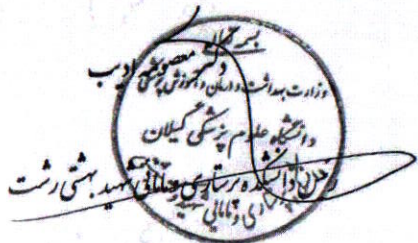 بسمه تعالی
دکتر معصومه ادیب
وزارت بهداشت و درمان و آموزش پزشکی
دانشگاه علوم پزشکی گیلان
دانشکده پرستاری و مامائی شهید بهشتی رشت